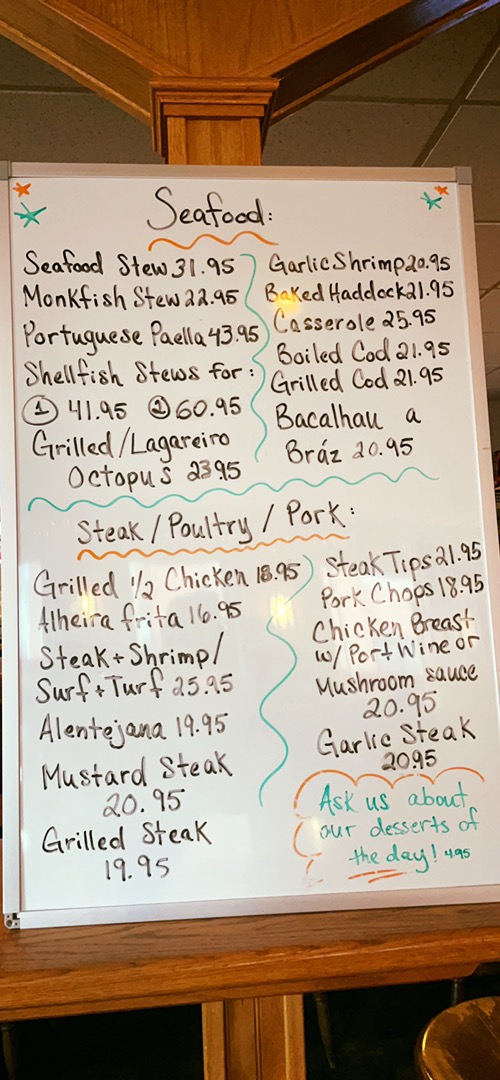 Seafood:
Seafood Stew 31.95
Monkfish Stew 22.95
Portuguese Paella 43.95
Shellfish Stews for:
① 41.95 ② 60.95
Grilled/Lagareiro
Octopus 23.95
Garlic Shrimp 20.95
Baked Haddock 21.95
Casserole 25.95
Boiled Cod 21.95
Grilled Cod 21.95
Bacalhau a
Bráz 20.95
Steak/Poultry/Pork:
Grilled 1/2 Chicken 18.95
Alheira frita 16.95
Steak + Shrimp/
Surf + Turf 25.95
Alentejana 19.95
Mustard Steak
20.95
Grilled Steak
19.95
Steak Tips 21.95
Pork Chops 18.95
Chicken Breast
w/ Port Wine or
Mushroom sauce
20.95
Garlic Steak
2095
Ask us about
our desserts of
the day! 4.95